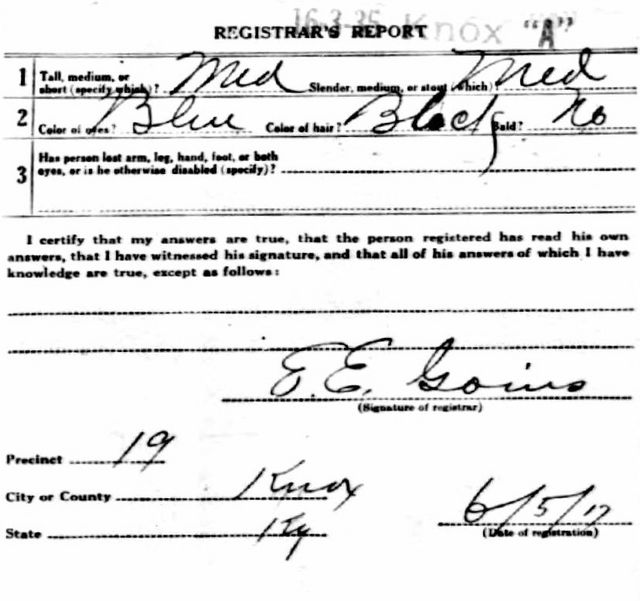 16-3-35 Knox "A"
REGISTRAR'S REPORT
1 Tall, medium, or short (specify which)? Med Slender, medium, or stout (which)? Med
2 Color of eyes? Blue Color of hair? Black Bald? No
3 Has person lost arm, leg, hand, foot, or both
eyes, or is he otherwise disabled (specify)?
I certify that my answers are true, that the person registered has read his own
answers, that I have witnessed his signature, and that all of his answers of which I have
knowledge are true, except as follows:
E. E. Goins
(Signature of registrar)
Precinct 19
City or County Knox
State Ky 6/5/17
(Date of registration)